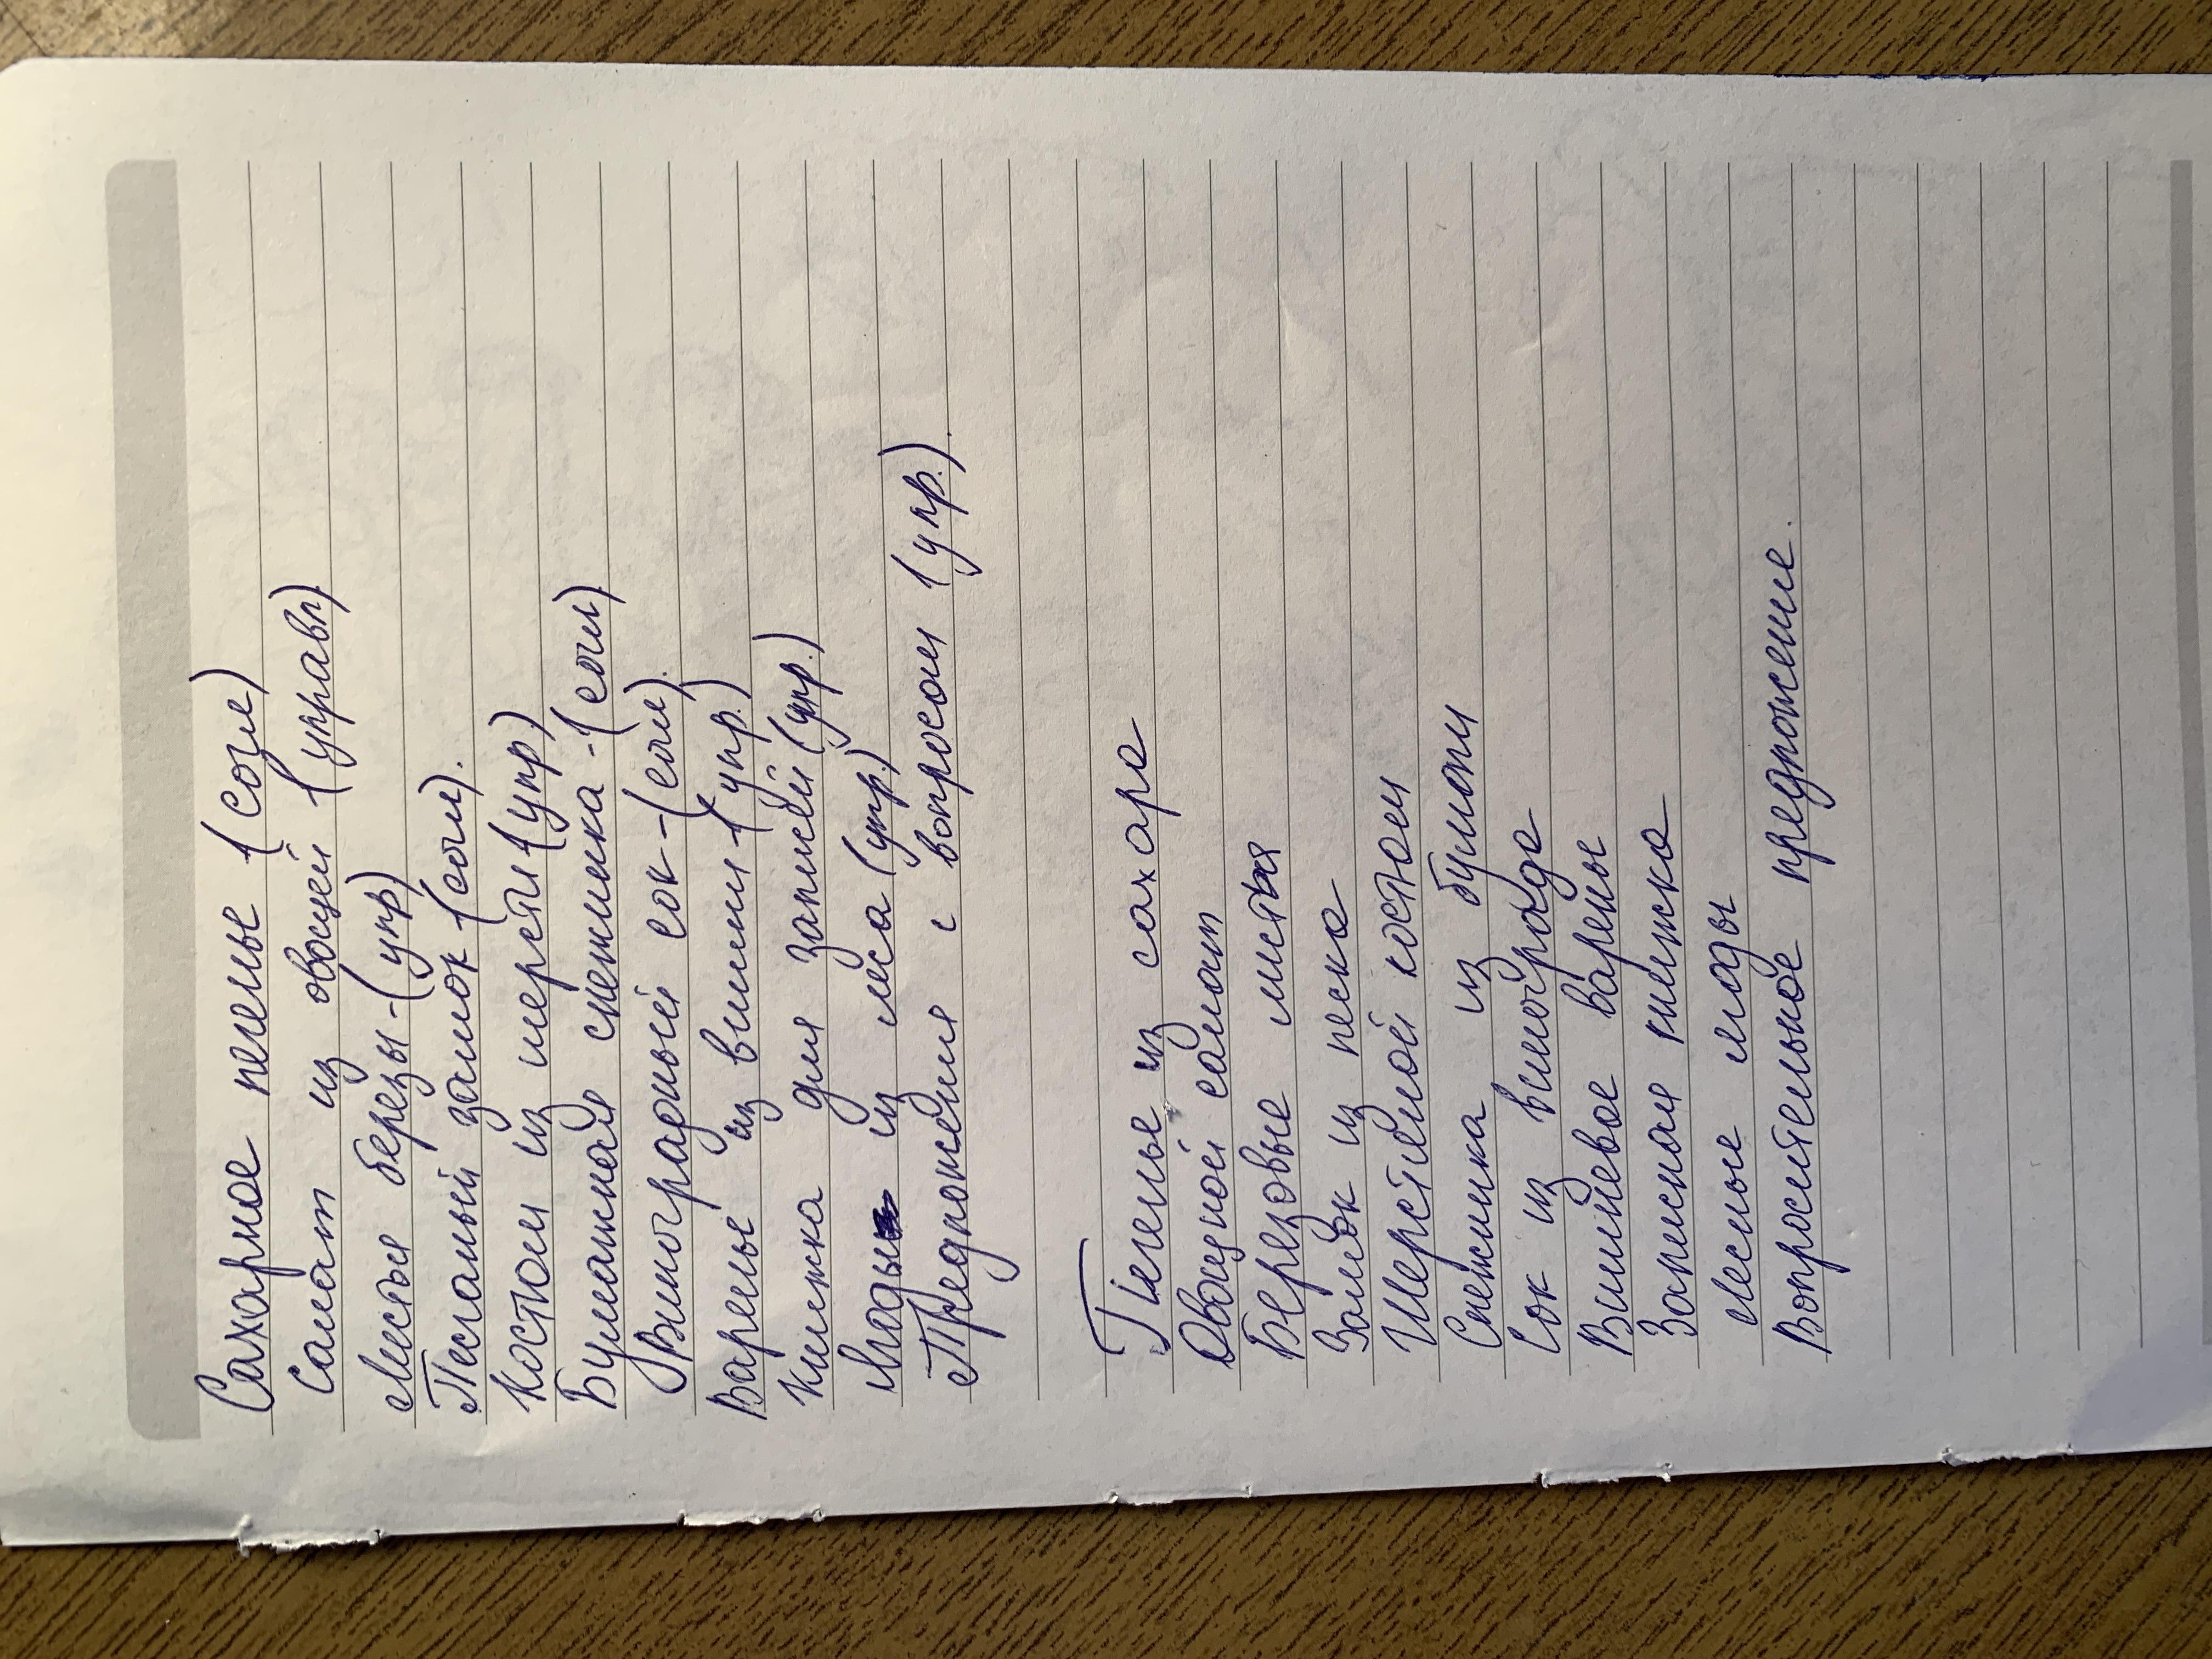 Сахарное печенье (согл)
Салат из овощей (управл)
Листья березы - (упр)
Песчаный замок (согл).
Костюм из шерсти (упр)
Бумажная снежинка - (согл)
Виноградный сок - (согл).
Варенье из вишни - (упр.)
Книжка для записей (упр.)
Ягоды из леса (упр.)
Предложения с вопросом (упр.).
Печенье из сахара
Овощной салат
Березовые листья
Замок из песка
Шерстяной костюм
Снежинка из бумаги
Сок из винограда
Вишневое варенье
Записная книжка
Лесные ягоды
Вопросительное предложение.